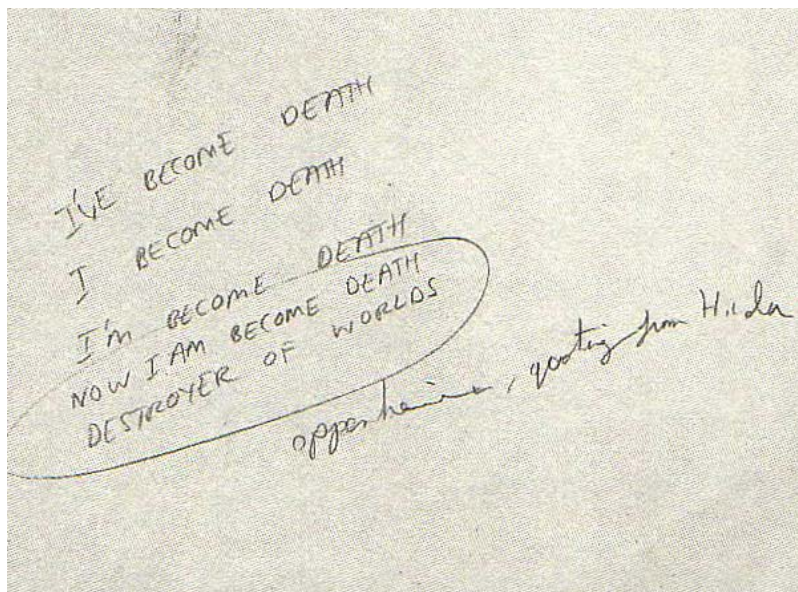 I'VE BECOME DEATH
I BECOME DEATH
I'M BECOME DEATH
NOW I AM BECOME DEATH
DESTROYER OF WORLDS
oppenheimer, quoting from